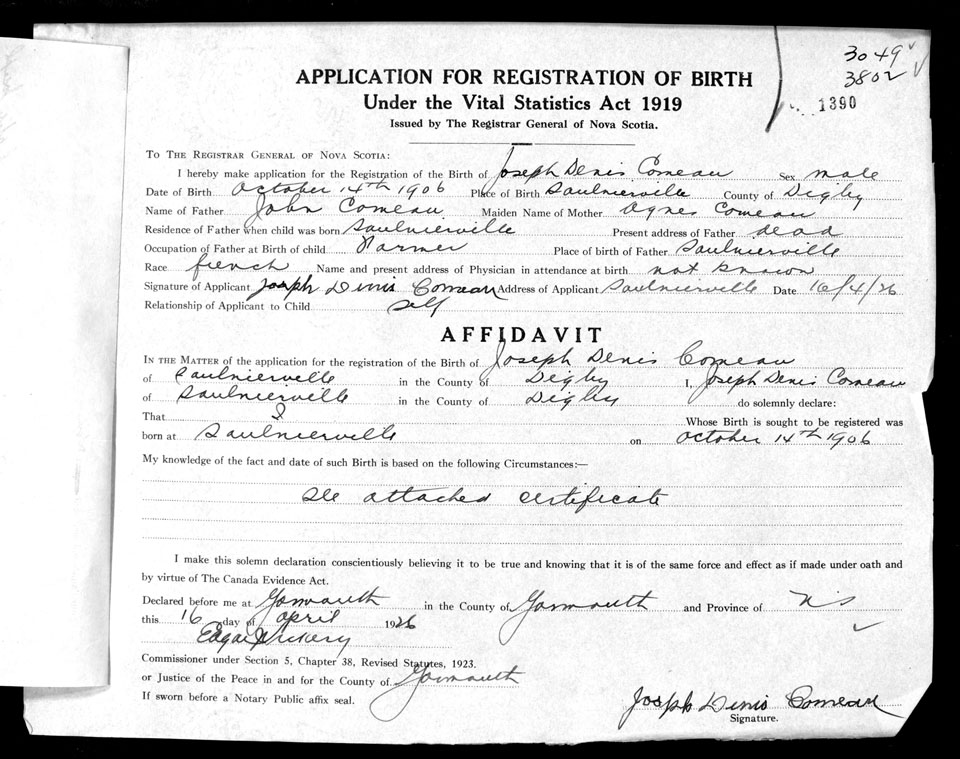 3049
3802
1390
APPLICATION FOR REGISTRATION OF BIRTH
Under the Vital Statistics Act 1919
Issued by The Registrar General of Nova Scotia.
TO THE REGISTRAR GENERAL OF NOVA SCOTIA:
I hereby make application for the Registration of the Birth of Joseph Denis Comeau Sex male
Date of Birth October 14th 1906 Place of Birth Saulnierville County of Digby
Name of Father John Comeau Maiden Name of Mother Agnes Comeau
Residence of Father when child was born Saulnierville Present address of Father dead
Occupation of Father at Birth of child Farmer Place of birth of Father Saulnierville
Race french Name and present address of Physician in attendance at birth not known
Signature of Applicant Joseph Dinis Comeau Address of Applicant Saulnierville Date 16/4/26
Relationship of Applicant to Child self
AFFIDAVIT
IN THE MATTER of the application for the registration of the Birth of Joseph Denis Comeau
of Saulnierville in the County of Digby I, Joseph Denis Comeau
of Saulnierville in the County of Digby do solemnly declare:
That I Whose Birth is sought to be registered was
born at Saulnierville on October 14th 1906
My knowledge of the fact and date of such Birth is based on the following Circumstances:—
see attached certificate
I make this solemn declaration conscientiously believing it to be true and knowing that it is of the same force and effect as if made under oath and
by virtue of The Canada Evidence Act.
Declared before me at Yarmouth in the County of Yarmouth and Province of NS
this 16 day of April 1926
Edgar Vickery
Commissioner under Section 5, Chapter 38, Revised Statutes, 1923.
or Justice of the Peace in and for the County of Yarmouth
If sworn before a Notary Public affix seal.
Joseph Dinis Comeau
Signature.